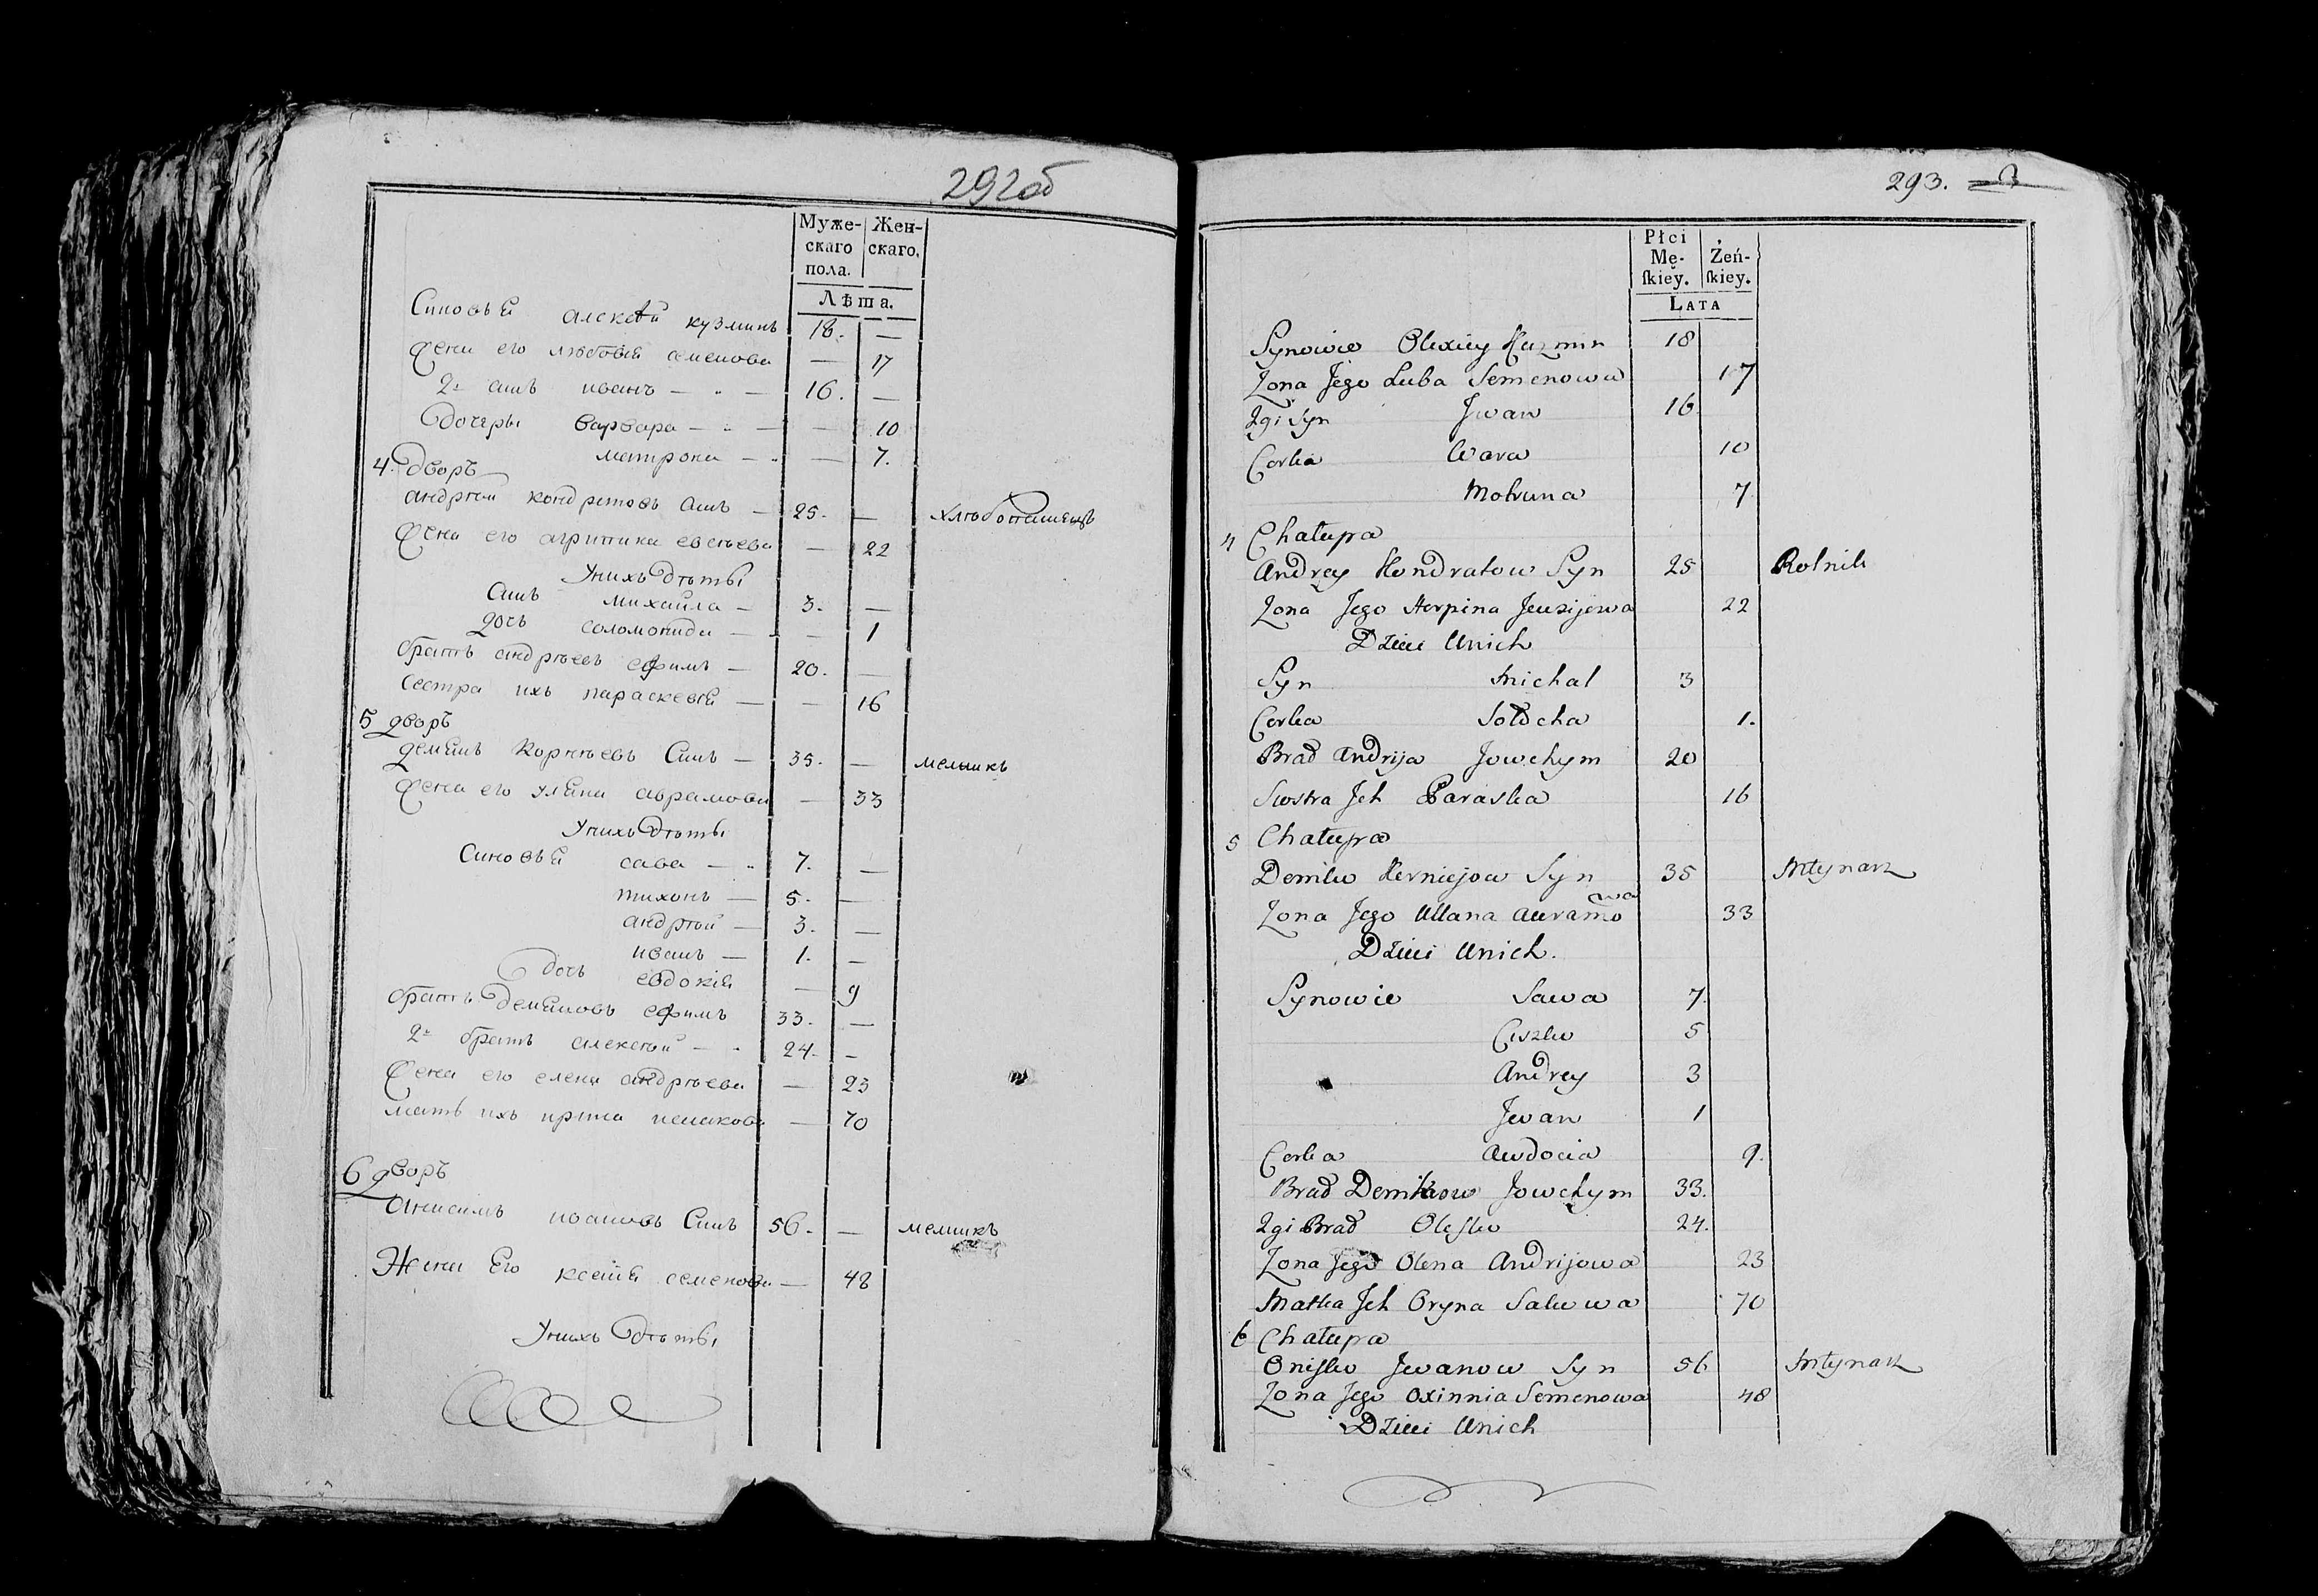 292об
Муже- Жен-
скаго скаго.
пола.
Лѣта.
Синовья алексѣй кузминъ 18. —
Жена его любовія семенова — 17
2й синъ иванъ — 16. —
Дочеры варвара — — 10
матрона — — 7.
4. Дворъ
андрей кондратовъ синъ — 25. — хлѣбопашецъ
Жена его агрипина евсѣева — 22
У нихъ дѣты
Синъ михайла — 3. —
дочъ соломонида — — 1
братъ андрѣевъ ефимъ — 20. —
сестра ихъ параскевія — — 16
5 дворъ
демянъ корнѣевъ Синъ — 35. — мелникъ
Жена его уляна аврамова — 33
У нихъ дѣты
Синовья сава — 7. —
тихонъ — 5. —
андрѣй — 3. —
иванъ — 1. —
дочъ евдокія — 9
братъ Демяновъ ефимъ 33. —
2й братъ алексѣй — 24. —
Жена его елена андрѣева — 23
мать ихъ ирина исакова — 70
6 дворъ
Анисимъ ивановъ Синъ 56. — мелникъ
Жена Его ксенія семенова — 48
У нихъ дѣты
293.
Płci
Mę- Żeń-
ſkiey. ſkiey.
LATA
Synowie Olexiey Kuzmin 18
Zona Jego Luba Semenowa 17
2gi Syn Jwan 16
Corka Wara 10
Motruna 7
4 Chałupa
Andrey Kondratow Syn 25 Rolnik
Zona Jego Horpina Jewsijowa 22
Dzieci Unich
Syn Michal 3
Corka Sołocha 1.
Brad Andrija Jowchym 20
Siostra Jch Paraska 16
5 Chałupa
Demko Kerniejow Syn 35 Młynarz
Zona Jego Ullana Awramowa 33
Dzieci Unich.
Synowie Sawa 7.
Ciszko 5
Andrey 3
Jwan 1
Corka Awdocia 9.
Brad Demkow Jowchym 33.
2gi Brad Olesko 24.
Zona Jego Olena Andrijowa 23
Matka Jch Oryna Sakowa 70
6 Chałupa
Onisko Jwanow Syn 56 Młynarz
Zona Jego Oxinnia Semenowa 48
Dzieci Unich